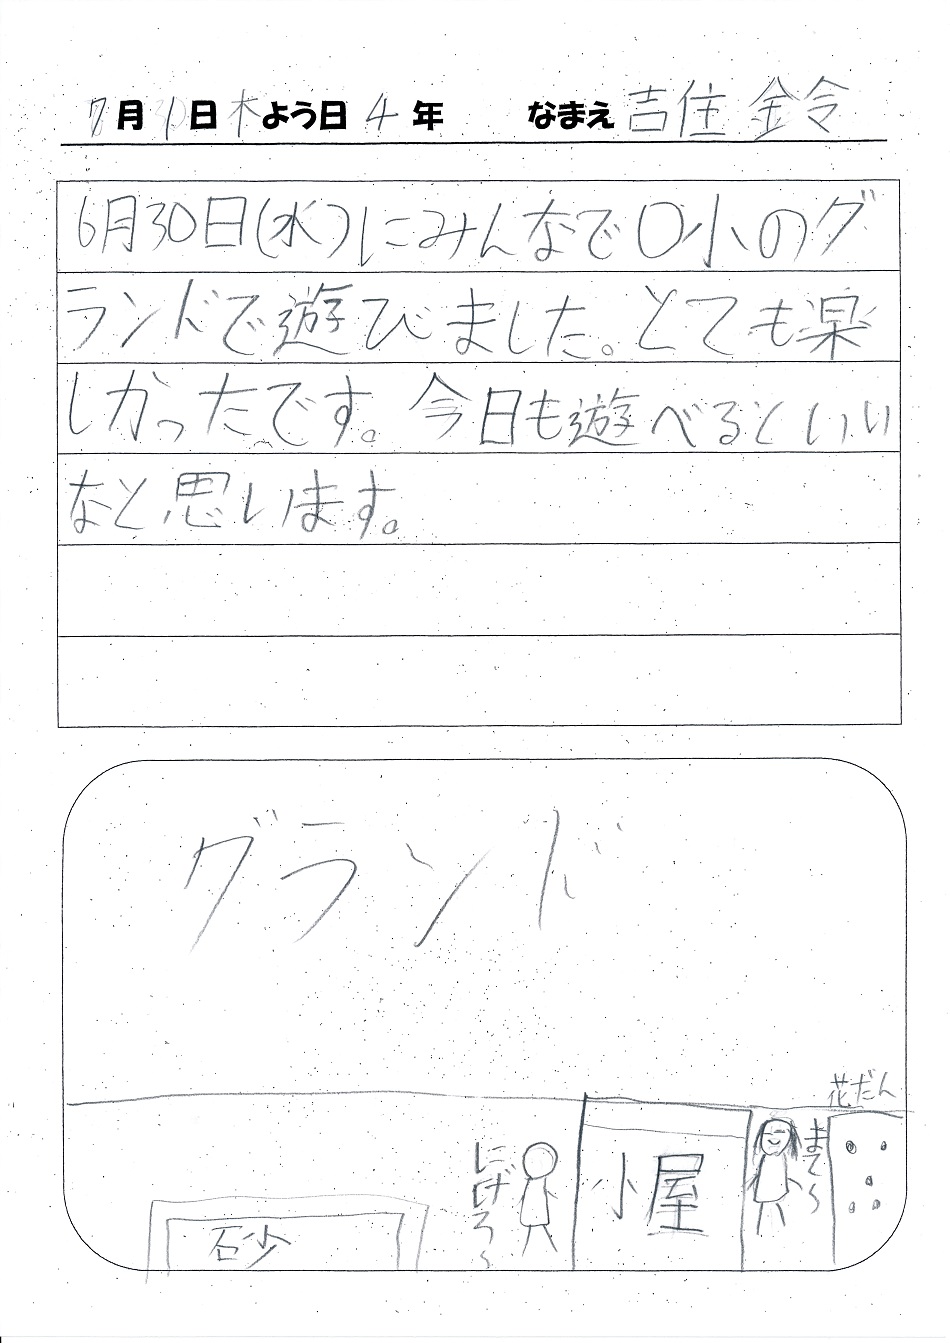 7月1日木よう日4年 なまえ 吉住 金令
6月30日(水)にみんなで〇小のグ
ランドで遊びました。とても楽
しかったです。今日も遊べるといい
なと思います。
グランド
花だん
にげろ〜
小屋
まて〜
砂